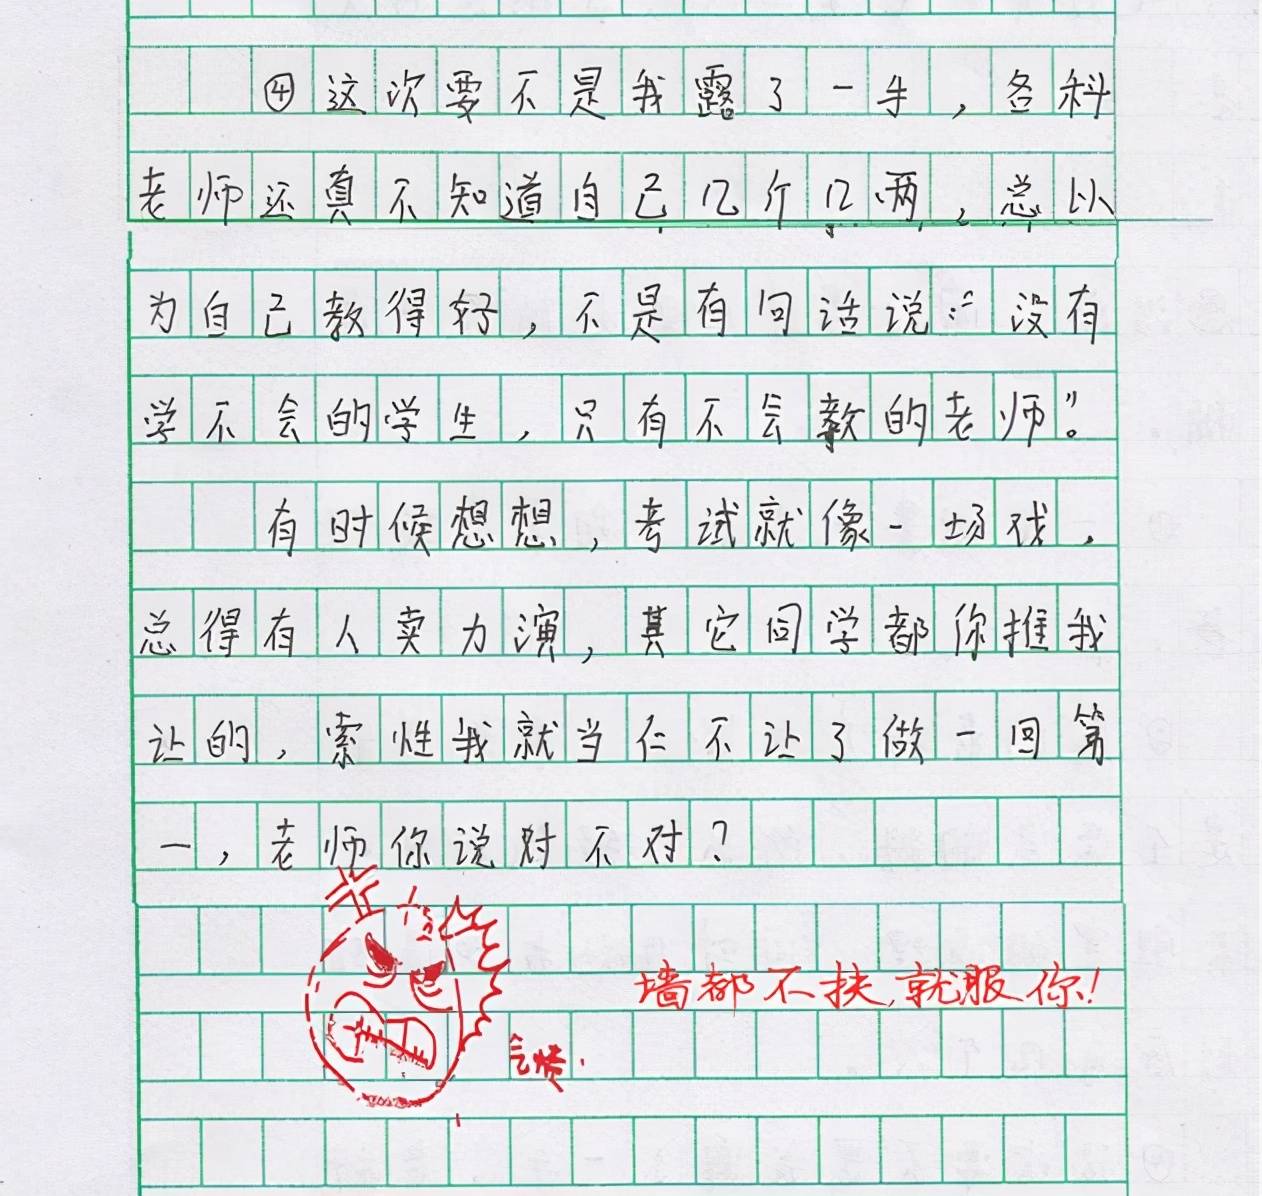 ④这次要不是我露了一手，各科
老师还真不知道自己几斤几两，总以
为自己教得好，不是有句话说：“没有
学不会的学生，只有不会教的老师”。
有时候想想，考试就像一场戏，
总得有人卖力演，其它同学都你推我
让的，索性我就当仁不让了做一回第
一，老师你说对不对？
墙都不扶，就服你！
气愤．